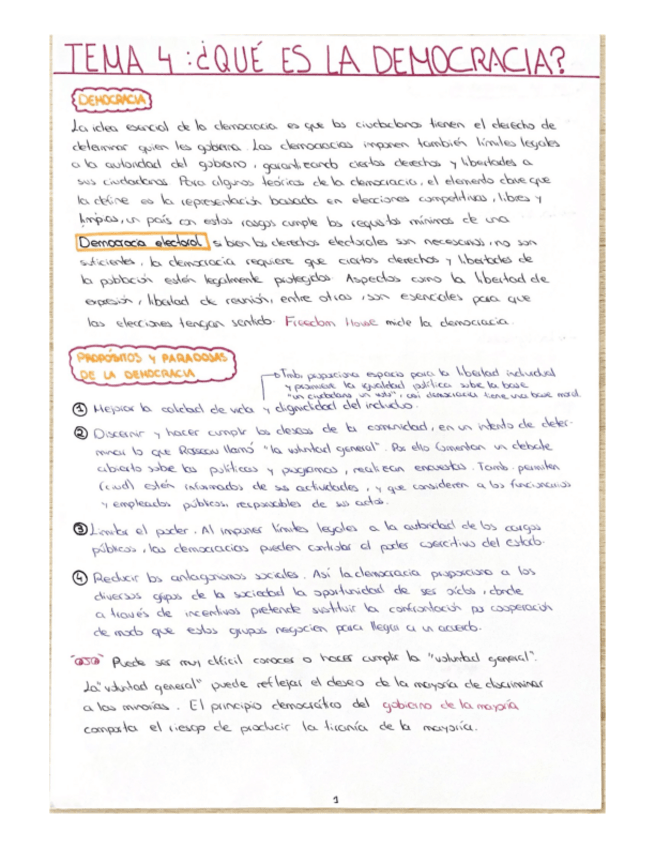 TEMA 4 : ¿QUÉ ES LA DEMOCRACIA?
DEMOCRACIA
La idea esencial de la democracia es que los ciudadanos tienen el derecho de
determinar quien les gobierna. Las democracias imponen también límites legales
a la autoridad del gobierno, garantizando ciertos derechos y libertades a
sus ciudadanos. Para algunos teóricos de la democracia, el elemento clave que
la define es la representación basada en elecciones competitivas, libres y
limpias, un país con estos rasgos cumple los requisitos mínimos de una
Democracia electoral, si bien los derechos electorales son necesarios, no son
suficientes, la democracia requiere que ciertos derechos y libertades de
la población estén legalmente protegidos. Aspectos como la libertad de
expresión, libertad de reunión, entre otras, son esenciales para que
las elecciones tengan sentido. Freedom House mide la democracia.
PROPÓSITOS Y PARADOJAS
DE LA DEMOCRACIA
Tmb. proporciona espacio para la libertad individual
y promueve la igualdad política sobre la base
"un ciudadano un voto", así democracia tiene una base moral.
① Mejorar la calidad de vida y dignidad del individuo.
② Discernir y hacer cumplir los deseos de la comunidad, en un intento de deter-
minar lo que Rosseau llamó "la voluntad general". Por ello fomentan un debate
abierto sobre las políticas y programas, realizan encuestas. Tamb. permiten
(ciud) estén informados de sus actividades, y que consideren a los funcionarios
y empleados públicos, responsables de sus actos.
③ Limitar el poder. Al imponer límites legales a la autoridad de los cargos
públicos, las democracias pueden controlar el poder coercitivo del estado.
④ Reducir los antagonismos sociales. Así la democracia proporciona a los
diversos grupos de la sociedad la oportunidad de ser oídos, donde
a través de incentivos pretende sustituir la confrontación por cooperación
de modo que estos grupos negocien para llegar a un acuerdo.
"OJO" Puede ser muy difícil conocer o hacer cumplir la "voluntad general".
La "voluntad general" puede reflejar el deseo de la mayoría de discriminar
a las minorías. El principio democrático del gobierno de la mayoría
comporta el riesgo de producir la tiranía de la mayoría.
1